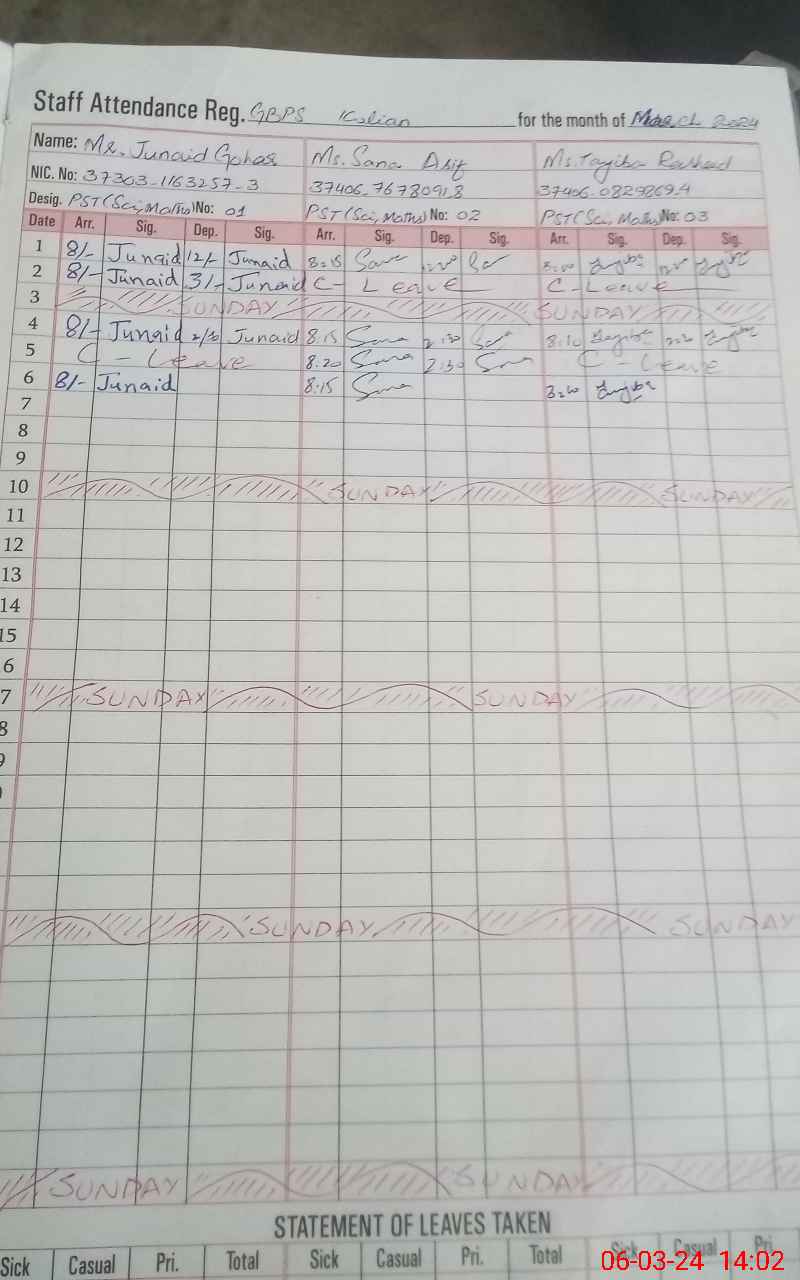 Staff Attendance Reg. GBPS Kalian for the month of March 2024
Name: Mr. Junaid Gohar Ms. Sana Asif Ms. Tayiba Rasheed
NIC. No: 37303-1163257-3 37406-7678091-8 37406-0829869-4
Desig. PST (Sci, Maths) No: 01 PST (Sci, Maths) No: 02 PST (Sci, Maths) No: 03
Date Arr. Sig. Dep. Sig. Arr. Sig. Dep. Sig. Arr. Sig. Dep. Sig.
1 8/- Junaid 12/- Junaid 8:15 Sana
2 8/- Junaid 3/- Junaid C- Leave C-Leave
3 SUNDAY SUNDAY
4 8/- Junaid 2/30 Junaid 8:15 Sana 2:30 8:10
5 C - Leave 8:20 Sana 2:30 Sana C - Leave
6 8/- Junaid 8:15 Sana
7
8
9
10 SUNDAY SUNDAY
11
12
13
14
15
6
7 SUNDAY SUNDAY
8
9
SUNDAY SUNDAY
SUNDAY SUNDAY
STATEMENT OF LEAVES TAKEN
Sick Casual Pri. Total Sick Casual Pri. Total Sick Casual Pri.
06-03-24 14:02